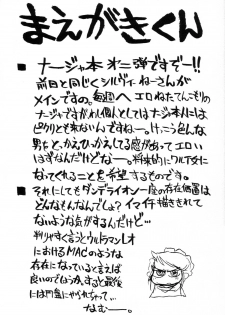 まえがきくん
■ ナージャ本オ二弾ですでー!!
前回と同じくシルヴィねーさんが
メインですの。毎週へエロねたてんこもりの
ナージャですがわイ個人としてはナージャ本人には
ピクリとも来ないんですねー。けっこう色んな
男をとっかえひっかえしてる感があってエロい
はずなんだけどなー。将来的にワル女に
なってくれることを希望するものです。
■ それにしてもダンデライオン一座の存在価値は
どんなもんなんでしょ?イマイチ描ききれて
ないような気がするんだけど…
判りやすく言うとウルトラマンレオ
におけるMACのような
存在になっていると言えば
良いのでしょうか。すると最後
には円盤にやられちゃって…
なむー。